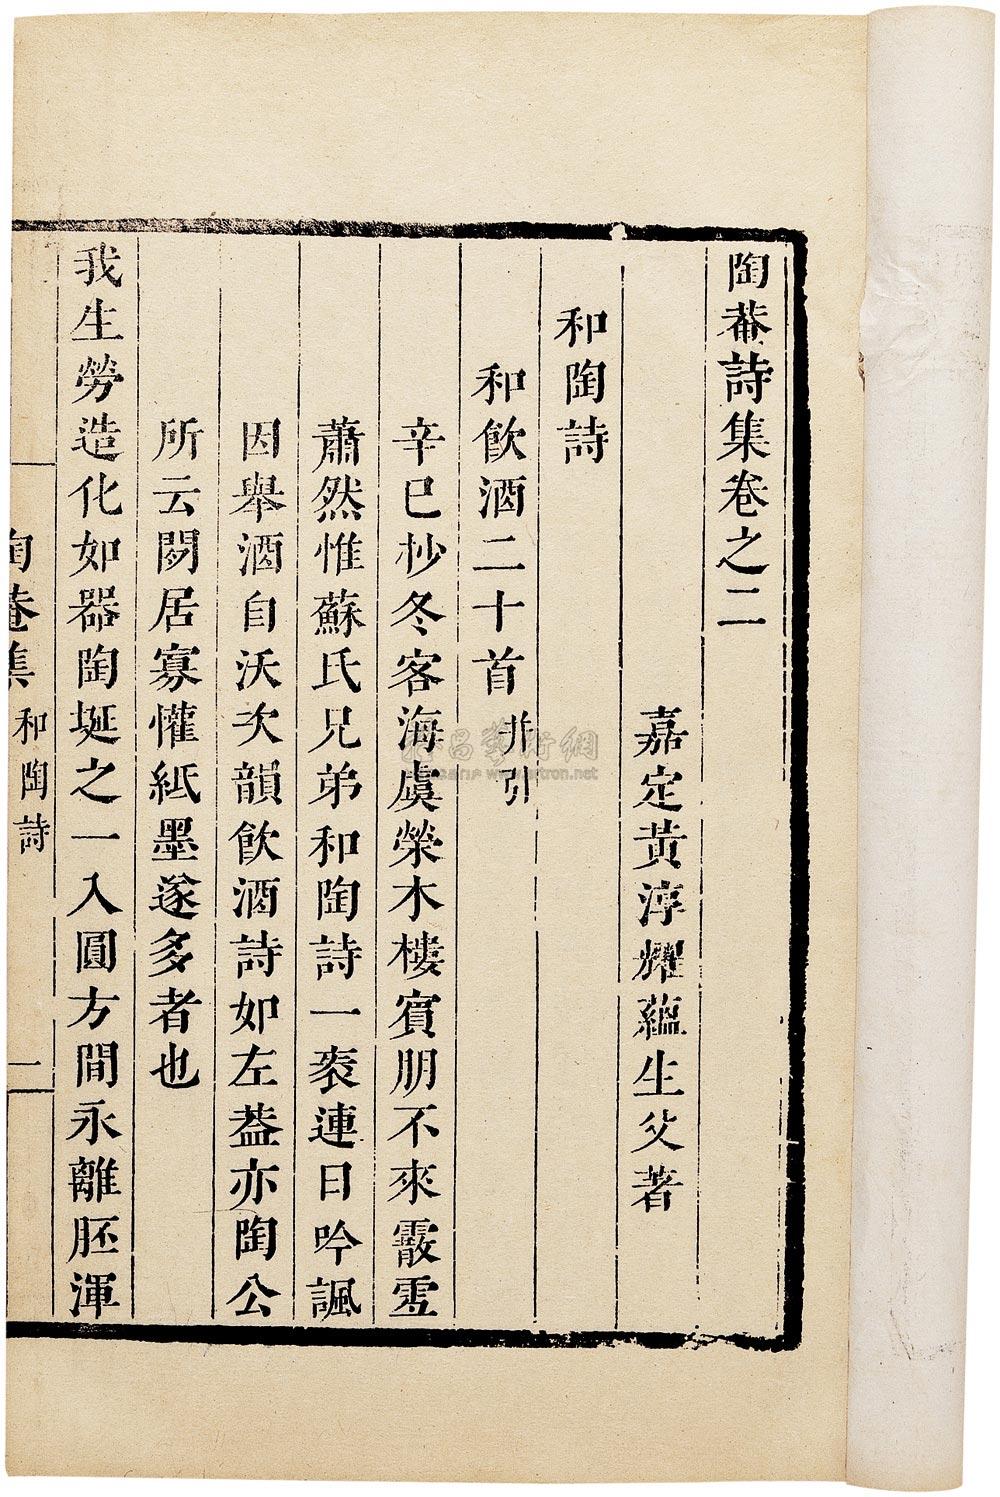 陶菴詩集卷之二
嘉定黃淳耀蘊生父著
和陶詩
和飮酒二十首 并引
辛巳杪冬客海虞榮木樓賓朋不來霰雪
蕭然惟蘇氏兄弟和陶詩一袠連日吟諷
因舉酒自沃次韻飮酒詩如左葢亦陶公
所云閒居寡懽紙墨遂多者也
我生勞造化如器陶埏之一入圓方間永離胚渾
陶菴集 和陶詩 一